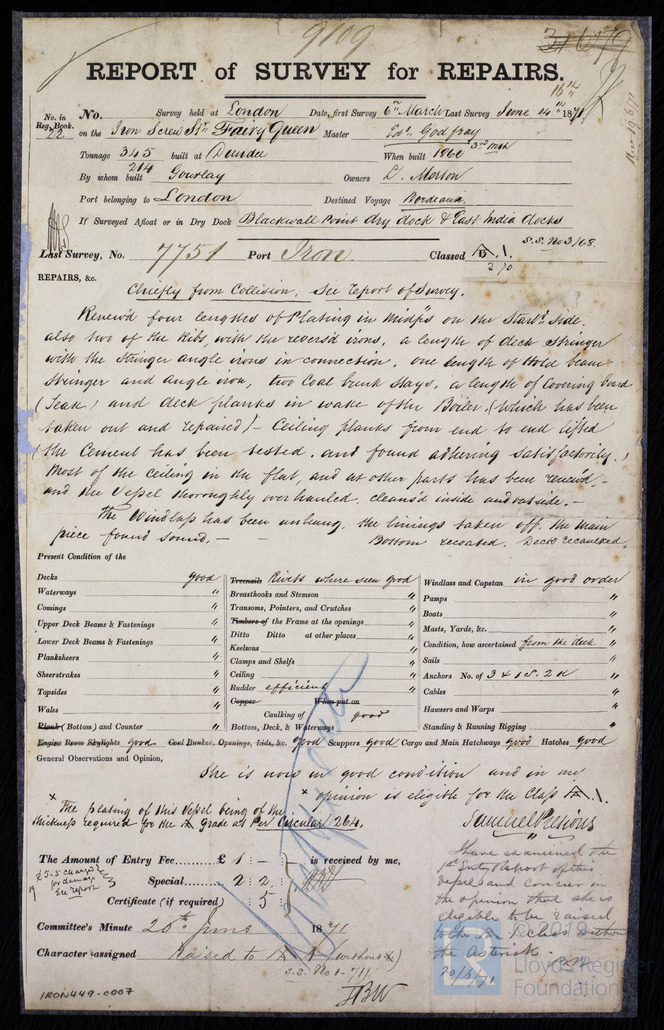 9109
31679
REPORT of SURVEY for REPAIRS.
No. in Reg. Book. 22
No. Survey held at London Date, first Survey 6th March Last Survey June 14th 1871
16th
on the Iron Screw Str Fairy Queen Master Edw. Godfray
Tonnage 345 built at Dundee When built 1860 3rd mth
214
By whom built Gourlay Owners D. Merson
Port belonging to London Destined Voyage Bordeaux.
If Surveyed Afloat or in Dry Dock Blackwall Point dry dock & East India docks
S.S. No 3/68
Last Survey, No. 7751 Port Iron. Classed A.1.
2/70
REPAIRS, &c.
Chiefly from Collision, See report of Survey.
Renew'd four lengths of Plating in Midsp's on the Starbd Side.
also two of the Ribs, with the revers'd irons, a length of deck Stringer
with the Stringer angle irons in connection. one length of Hold beam
Stringer and angle iron, two Coal bunk Stays, a length of Covering board
(Teak) and deck planks in wake of the Boiler, (which has been
taken out and repaired) – Ceiling planks from end to end lifted
(the Cement has been tested, and found adhering satisfactorily.)
Most of the ceiling in the flat, and at other parts has been renew'd –
and the Vessel thoroughly overhauled, cleans'd inside and outside. –
The Windlass has been unhung, the linings taken off, the main
piece found sound. – Bottom recoated. Decks recaulked.
Present Condition of the
Decks good
Waterways "
Comings "
Upper Deck Beams & Fastenings "
Lower Deck Beams & Fastenings "
Planksheers "
Sheerstrakes "
Topsides "
Wales "
Plank (Bottom) and Counter "
Treenails Rivets where seen good
Breasthooks and Stemson "
Transoms, Pointers, and Crutches "
Timbers of the Frame at the openings "
Ditto Ditto at other places "
Keelsons "
Clamps and Shelfs "
Ceiling "
Rudder efficient
Copper When put on
Caulking of good
Bottom, Deck, & Waterways
Windlass and Capstan in good order
Pumps "
Boats "
Masts, Yards, &c. "
Condition, how ascertained from the deck
Sails "
Anchors No. of 3 & 1 S. 2 K "
Cables "
Hawsers and Warps "
Standing & Running Rigging "
Engine Room Skylights good Coal Bunker, Openings, Lids, &c. good Scuppers good Cargo and Main Hatchways good Hatches good
General Observations and Opinion,
She is now in good condition and in my
x opinion is eligible for the Class A.1.
x The plating of this Vessel being of the
thickness required for the A grade as per Circular 264.
Samuel Pusions
The Amount of Entry Fee...... £ 1 : – is received by me,
Special...... 2 : 2.
Certificate (if required) : 5
£5-5 charged
for damage
See report
I have examined the
1st Entry Report of this
vessel and concur in
the opinion that she is
eligible to be raised
to the A class without
the asterisk.
20/6/71
Committee's Minute 20th June 1871
Character assigned Raised to A A (without x)
S.S. No 1-7/1
HBW
IRON449-0007
© 2018
Lloyd's Register
Foundation